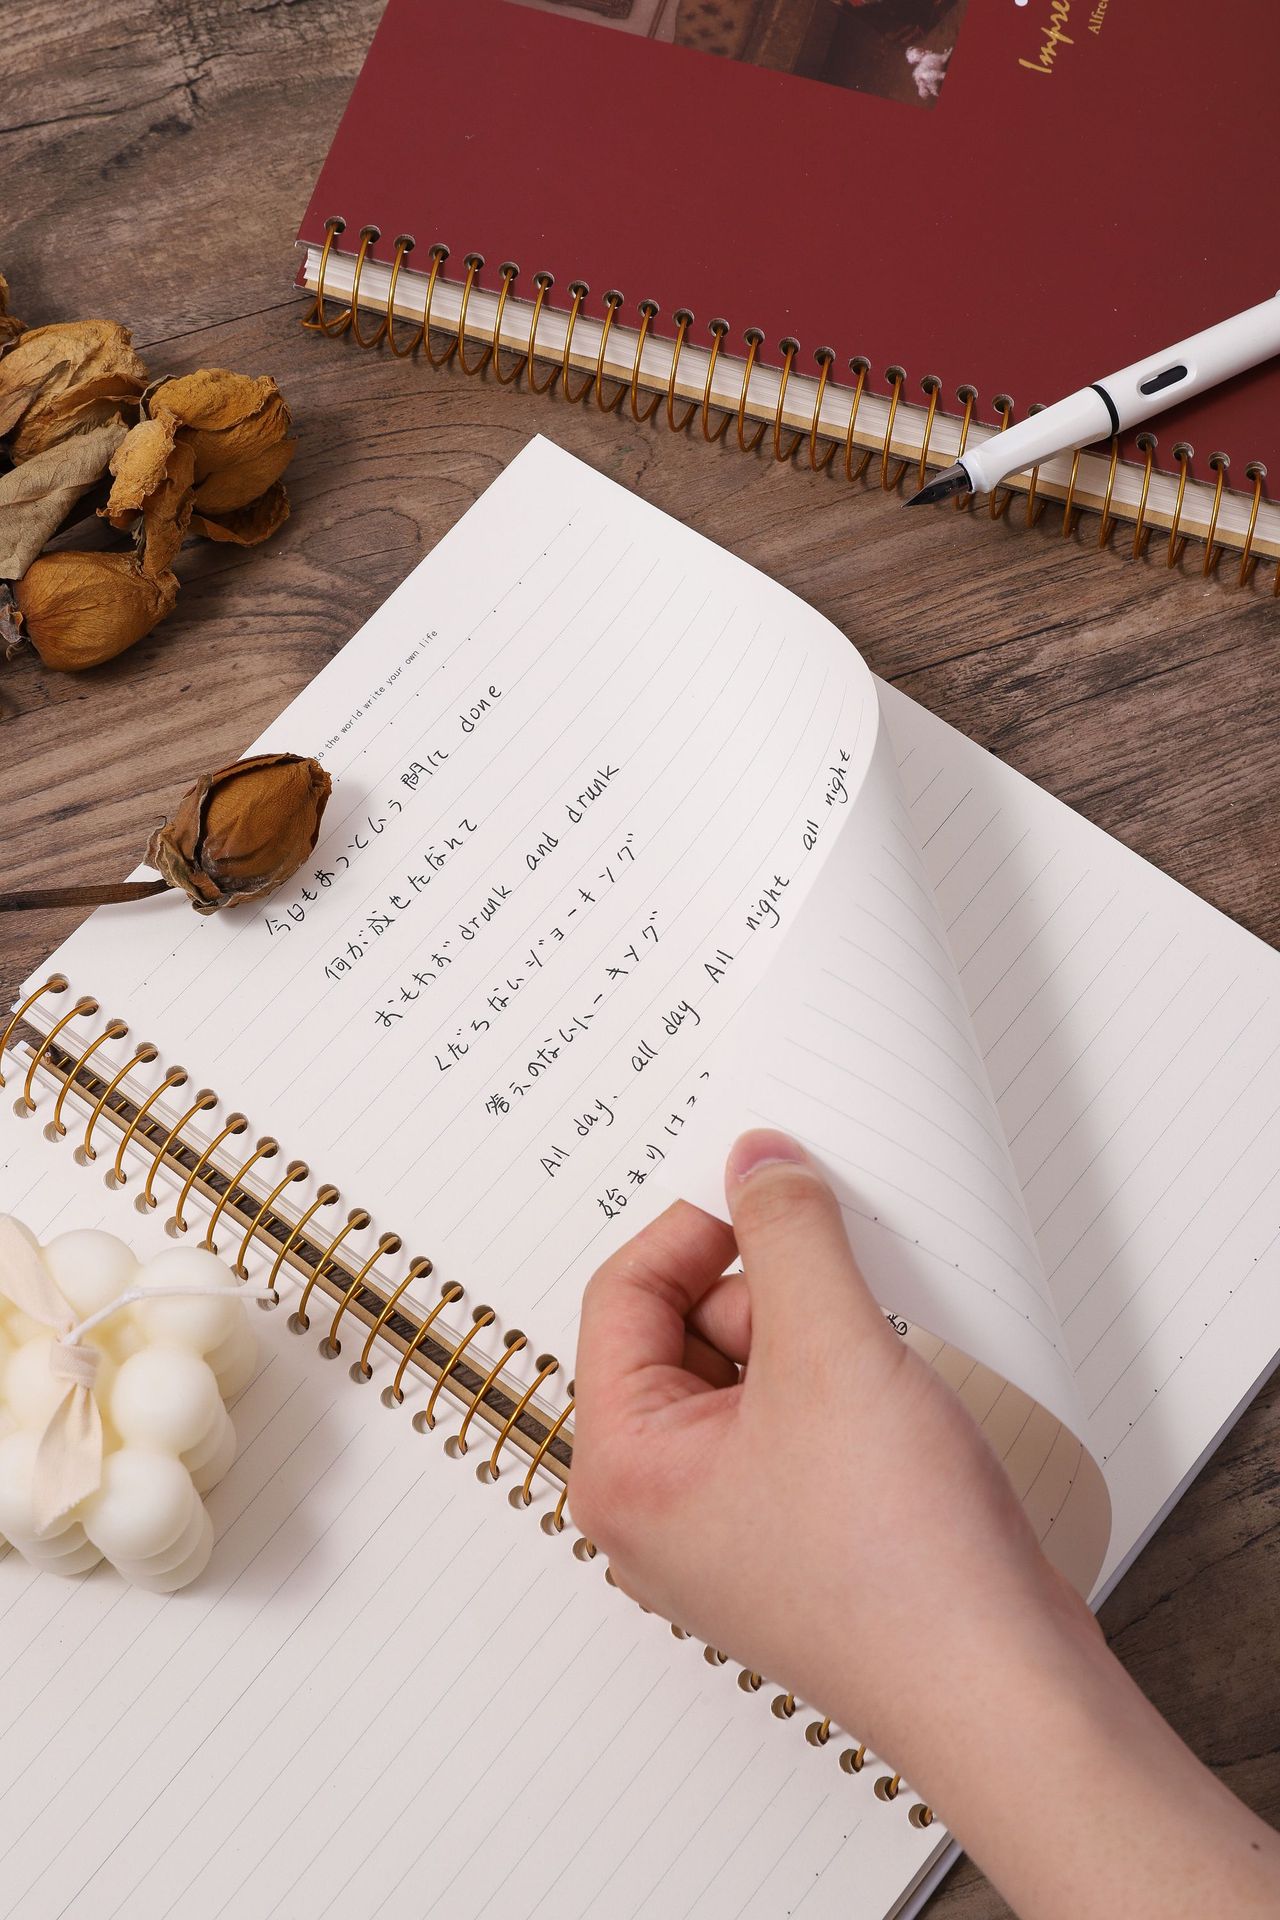 Impre
Alfre
to the world write your own life
今日もあっという間に done
何が成せたなんて
おもわず drunk and drunk
くだらないジョーキング
答えのないハーキング
All day. all day All night all night
始まりはコ